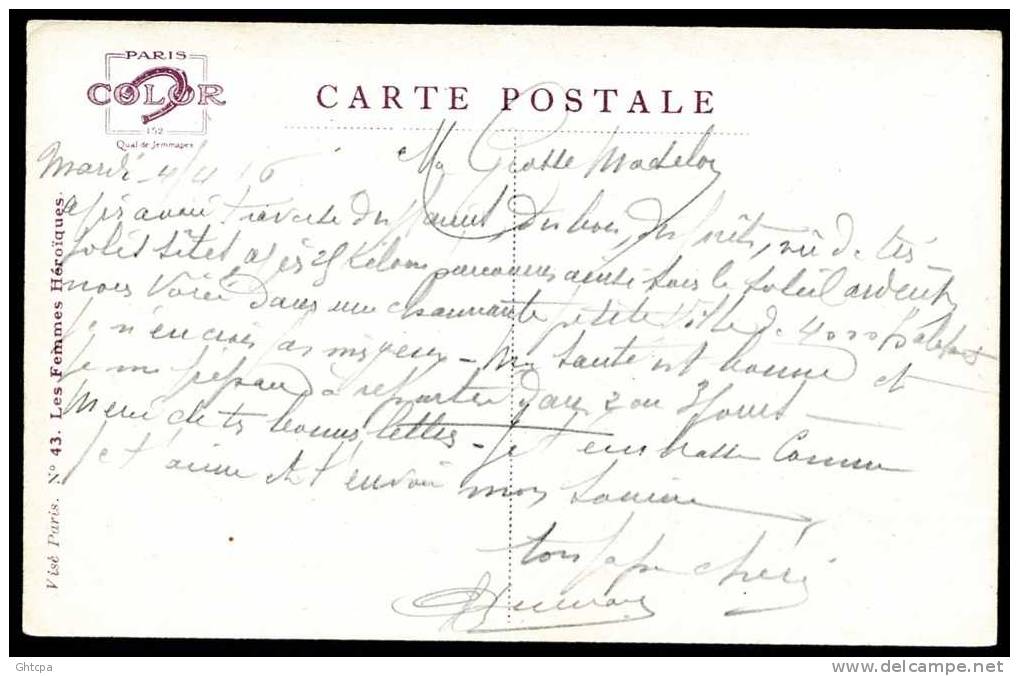 PARIS
COLOR
152
Quai de Jemmapes
CARTE POSTALE
Mardi 4/4 16
Ma Grosse Madelon
après avoir traversé des, des bois, des forêts, vu de très
jolis sites après 25 kilom parcourus ainsi sous le soleil ardent
nous voici dans une charmante petite Ville de 4000 habitants
Je n'en crois pas mes yeux - Ma santé est bonne et
je me prépare à repartir dans 2 ou 3 jours -
Merci de tes bonnes lettres - Je t'embrasse comme
je t'aime et t'envoie mon
ton papa chéri
Visé Paris. N° 43. Les Femmes Héroïques.
Ghtcpa
www.delcampe.net